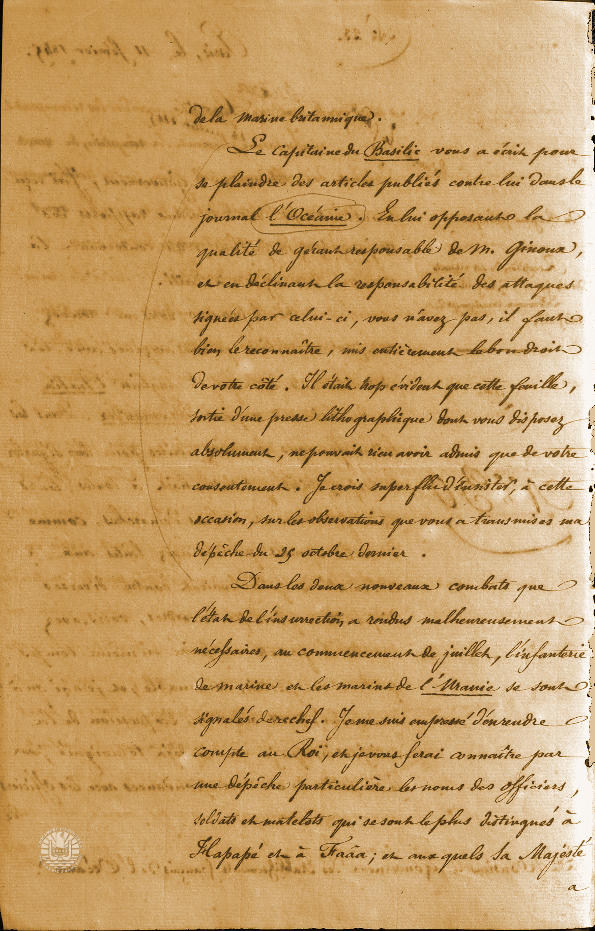 de la marine britannique.
Le Capitaine du Basilic vous a écrit pour
se plaindre des articles publiés contre lui dans le
journal l'Océanie. En lui opposant la
qualité de gérant responsable de M. Ginoux,
et en déclinant la responsabilité des attaques
signées par celui-ci, vous n'avez pas, il faut
bien le reconnaître, mis entièrement le bon droit
de votre côté. Il était trop évident que cette feuille,
sortie d'une presse lithographique dont vous disposez
absolument, ne pouvait rien avoir admis que de votre
consentement. Je crois superflu d'insister, à cette
occasion, sur les observations que vous a transmises ma
dépêche du 25 octobre dernier.
Dans les deux nouveaux combats que
l'état de l'insurrection a rendus malheureusement
nécessaires, au commencement de juillet, l'infanterie
de marine et les marins de l'Uranie se sont
signalés derechef. Je me suis empressé d'en rendre
compte au Roi, et je vous ferai connaître par
une dépêche particulière les noms des officiers,
soldats et matelots qui se sont le plus distingués à
Hapapé et à Faäa; et aux quels Sa Majesté
a